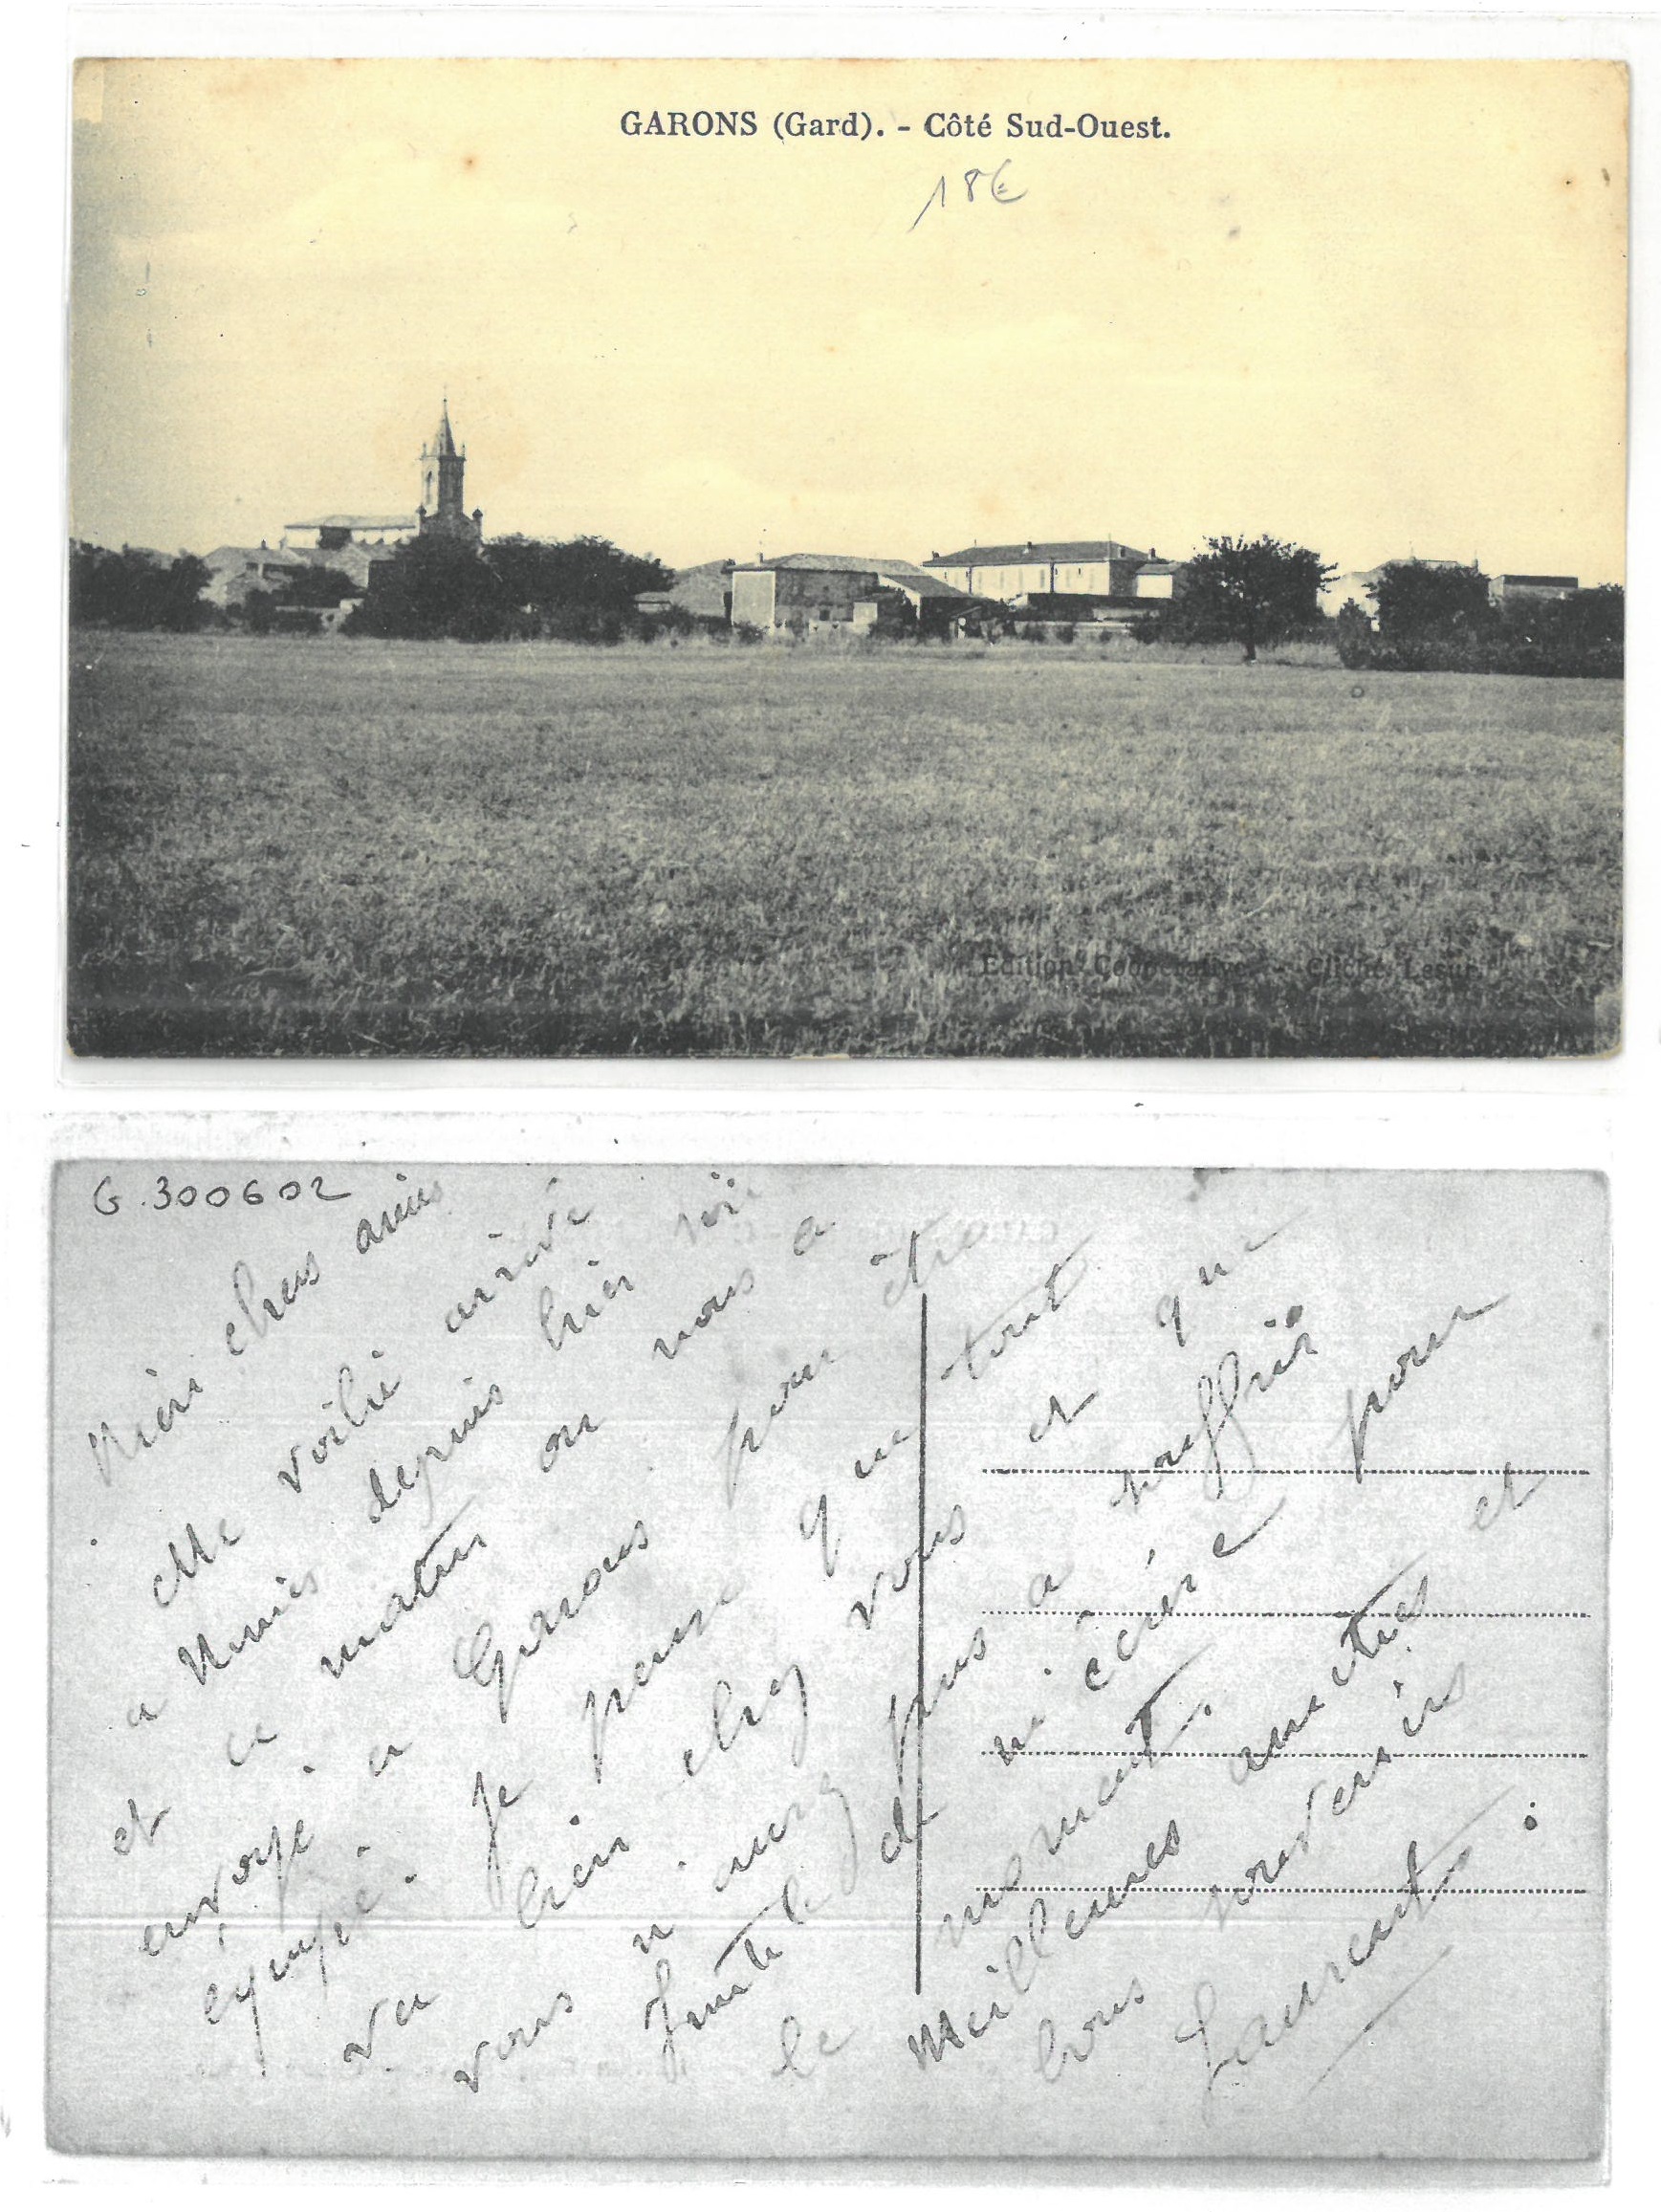 GARONS (Gard). - Côté Sud-Ouest.
18€
Edition Coopérative. - Cliché Lesur.
G.300602
Bien chers amis
Me voilà arrivé
a Nimes depuis hier soir
et ce matin on nous a
envoyé a Garons pour être
équipé. Je pense que tout
va bien chez vous et que
vous n'aurez pas a souffrir
Inutile de m'écrire pour
le moment.
Meilleures amitiés et
bons souvenirs
Laurent.